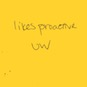 likes proactive
UW